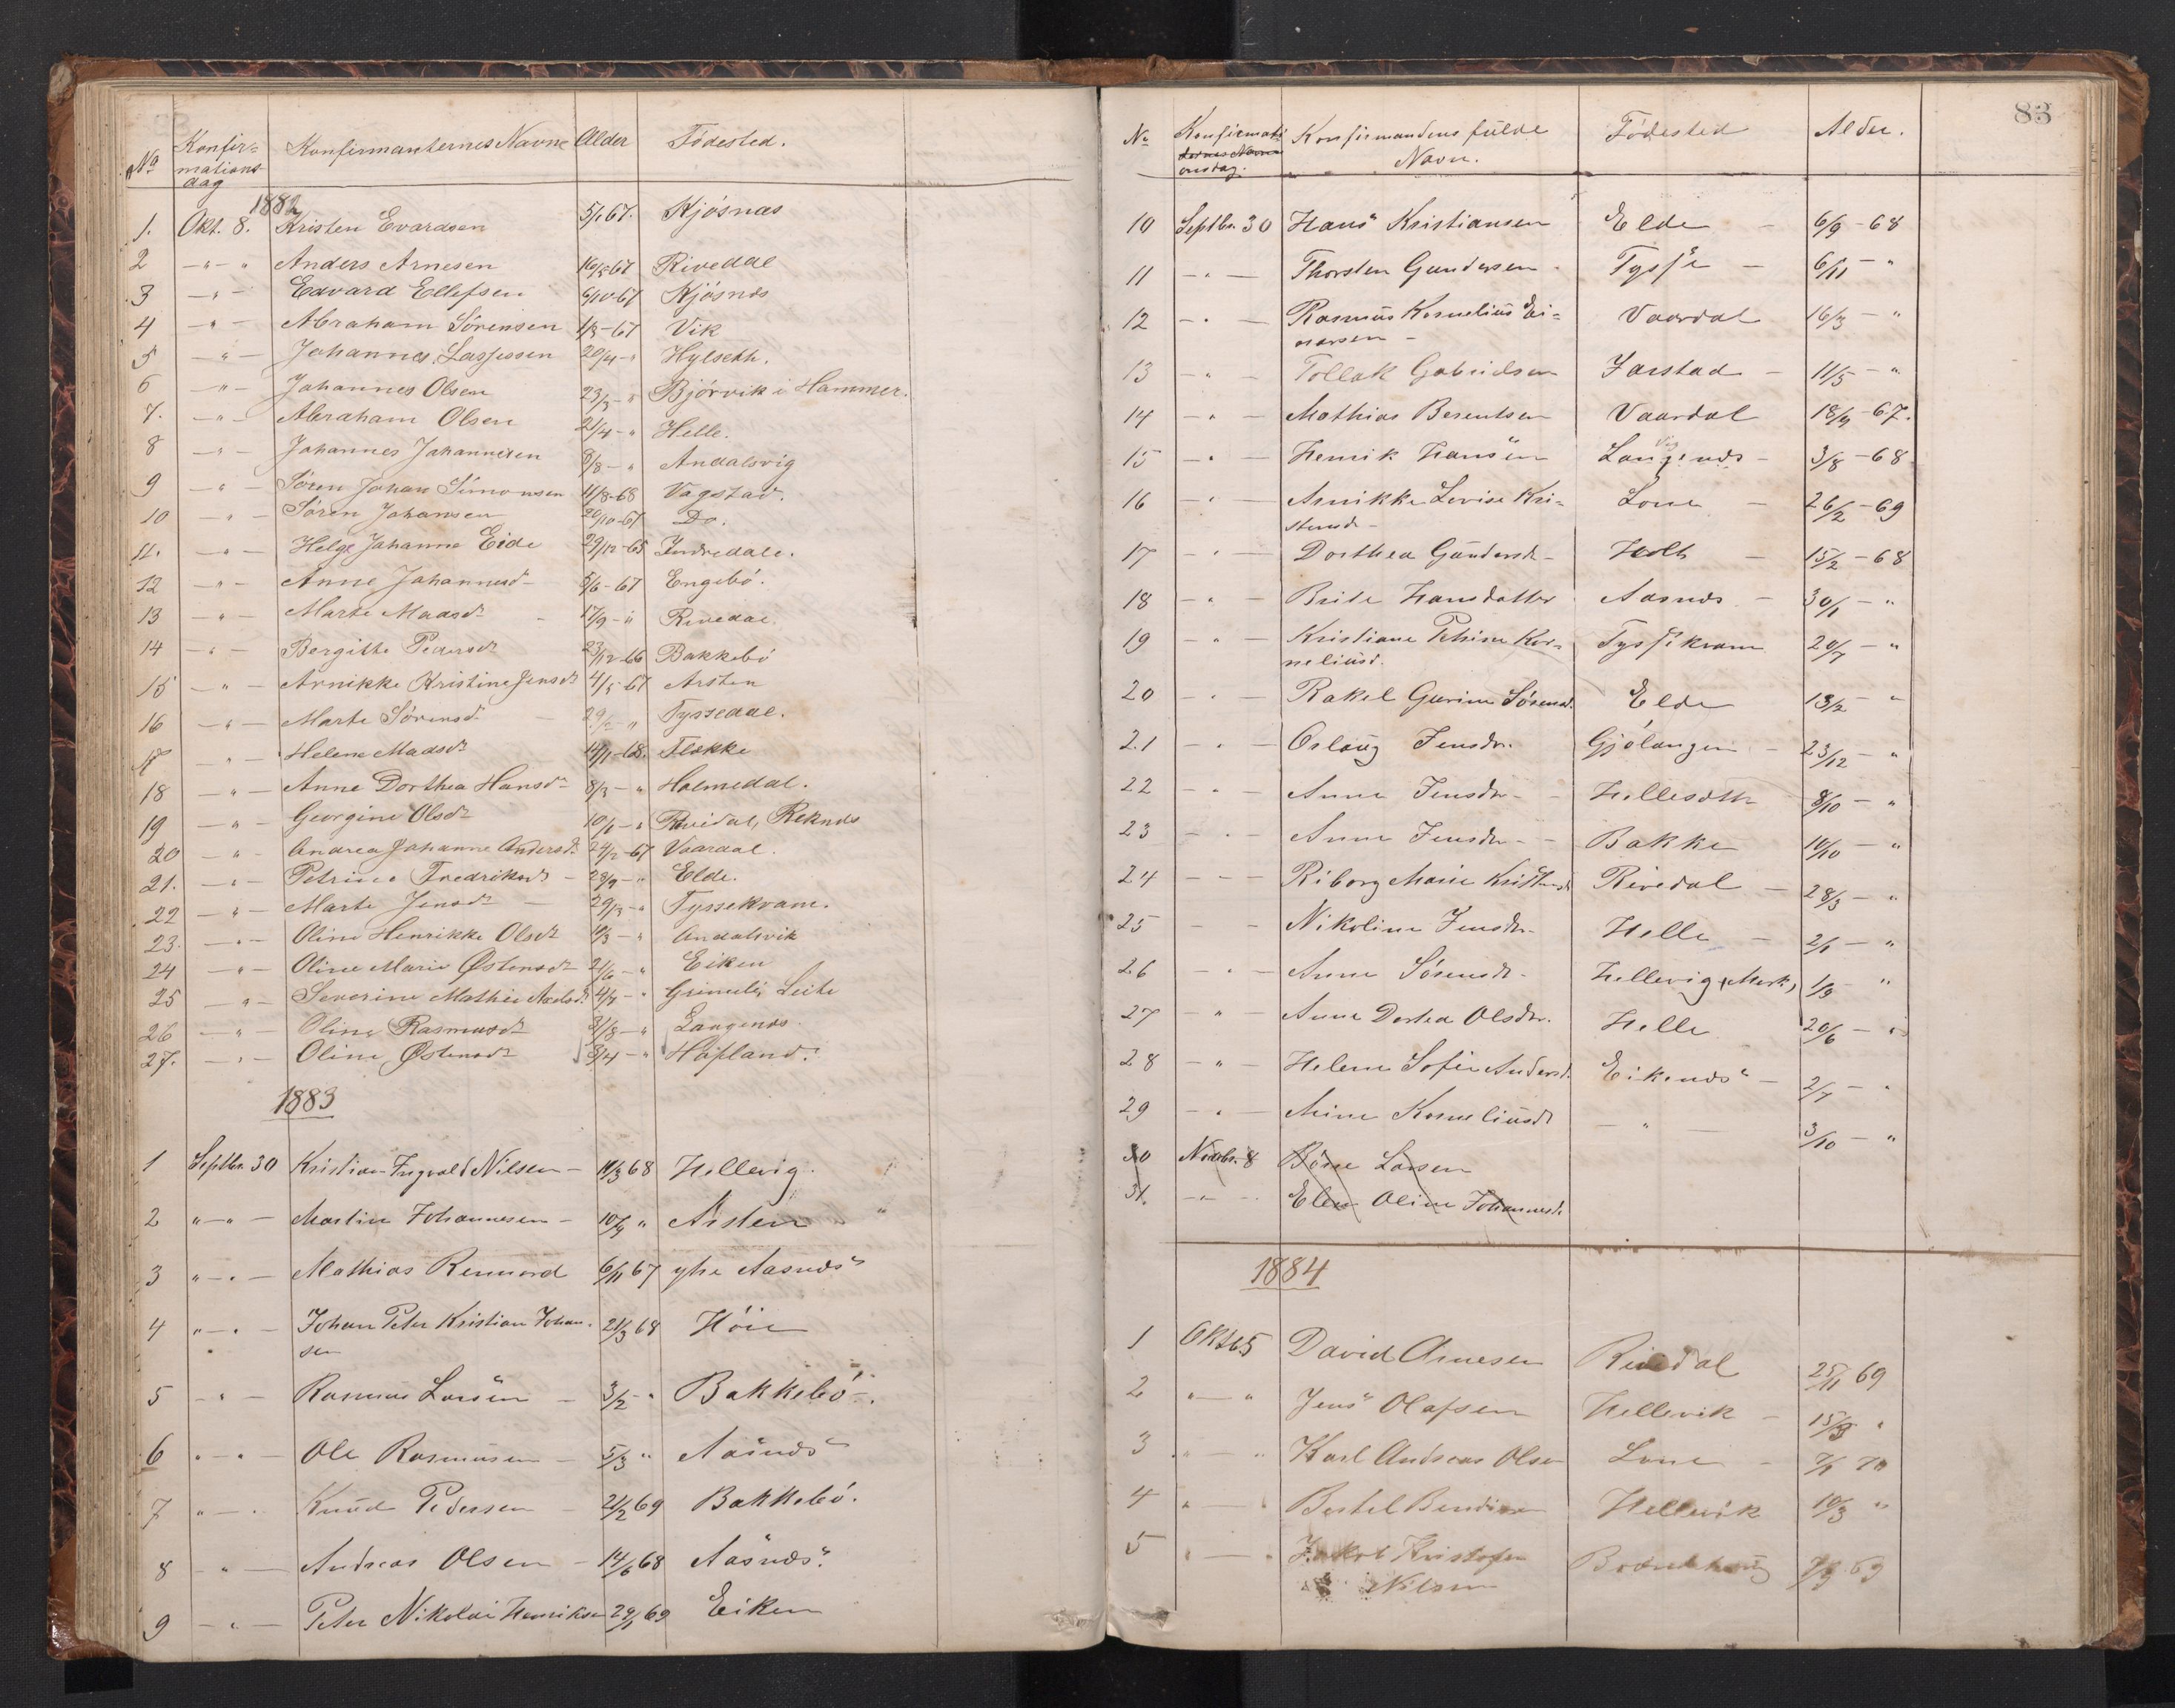 No Konfir= mations dag Konfirmanternes Navne Alder Födested.
1882
1. Okt. 8. Kristen Evardsen 5/1 67. Kjösnæs
2 -"-" Anders Arnesen 10/5-67 Rivedal
3 -"- Edvard Ellefsen 6/10-67 Kjösnes
4 -"- Abraham Sörensen 1/3-67 Vik
5 -"- Johannes Lassesen 20/4-" Hylseth.
6 -"- Johannes Olsen 23/3-" Bjórvik i Hammer.
7. -"- Abraham Olsen 21/4-" Helle.
8 -"- Johannes Johannesen 8/8-" Andalsvig
9 -"- Sören Johan Simonsen 11/8-68 Vagstad.
10 -"- Sören Johansen 20/10-67 Do.
11. -"- Helge Johanne Eide 29/12-65 Indredale.
12 -"- Anne Johannesd- 5/6-67 Engebö.
13 -"- Marte Madsdr - 17/9-" Rivedal.
14 -"- Bergitte Pedersdr 23/12-66 Bakkebö
15 -"- Arnikke Kristine Jensdr 4/5-67 Arsten
16 -"- Marte Sörensdr - 29/2-" Tyssedal.
17 -"- Helene Madsdr 14/1-68. Flekke
18 -"- Anne Dorthea Hansdr 8/3-" Holmedal.
19 -"- Georgine Olsdr 10/1-" Rivedal, Reknes
20 -"- Andrea Johanne Andersdr. 24/2-67 Vaardal.
21. -"- Petrine Fredriksdr - 28/9-" Elde.
22 -"- Marte Jensdr - 29/3-" Tyssekvam.
23. -"- Oline Henrikke Olsdr 10/3-" Andalsvik
24 -"- Oline Marie Østensdr 21/6-" Eiken
25 -"- Severine Mathie Axelsd. 4/7-" Grimelis Leite
26 -"- Oline Rasmusdr 31/8-" Langenes.
27. -"- Oline Østensdr 3/4-" Höfland.
1883
1 Septbr. 30 Kristian Ingvald Nilsen - 11/3 68 Hellevig.
2 "-"- Martin Johannesen - 10/4 " Arsten "
3 "-"- Mathias Rennord 6/11 67 yhe Aasnes
4 "-"- Johan Peter Kristian Johan-
sen 21/3 68 Höie
5 -"- Rasmus Larsen - 3/2-" Bakkebö.
6 "-"- Ole Rasmusen - 5/3 " Aasnes
7 "-" Knud Pedersen - 21/2 69 Bakkebö.
8 -"- Andreas Olsen - 14/6 68 Aasnes.
9 -"- Peter Nikolai Henriksen 29/1 69 Eiken
83
No Konfirmati- onsdag. Konfirmandens fulde Navn. Födested Alder.
10 Septbr. 30 Hans Kristiansen Elde - 6/9-68
11 -"- Thorsten Gundersen Tysse - 6/11-"
12 -"- Rasmus Kornelius Ei=
narsen - Vaardal 16/3-"
13 -"- Tollak Gabrielsen Jarstad - 11/5-"
14 -"- Mathias Berentsen Vaardal 18/9-67.
15 -"- Henrik Hansen Langenes - 3/8-68
16 -"- Arnikke Lovise Kri=
stensd- Lone - 26/2-69
17 -"- Dorthea Gundersdr- Holt - 15/2-68
18 -"- Brite Hansdatter Aasnes - 30/1-"
19 -"- Kristiane Petrine Kor=
neliusd. Tyssekvam 20/7-"
20 -"- Rakel Gurine Sörensd. Elde 13/2-"
21 -"- Oslaug Jensdr. Gjölangen - 23/12-"
22 -"- Anne Jensdr- Hellesæth 8/10-"
23 -"- Anne Jensdr- - Bakke 10/10-"
24 -"- Riborg Marie Kristensd Rivedal - 28/3-"
25 - - Nikoline Jensdr- Helle - 2/1-"
26 -"- Anne Sörensdr- Hellevig (Mork) 1/3-"
27 -"- Anne Dortea Olsdr. Helle 20/6-"
28 -"- Helene Sofie Andersd. Eikenes - 2/7-"
29 -"- Anne Korneliusdr -"- 3/10-"
30 Novbr. 8 Börre Larsen
31. -"- Elen Oline Johannesdr.
1884
1 Oktb. 5 David Arnesen Rivedal 25/11 69
2 "-" Jens Olafsen Hellevik - 15/8 "
3 "-" Karl Andreas Olsen Lone - 7/1 70
4 "-" Bertel Bendixen Hellevik 10/3 "
5 "-" Jakob Kristofer
Nilsen 7/9 69